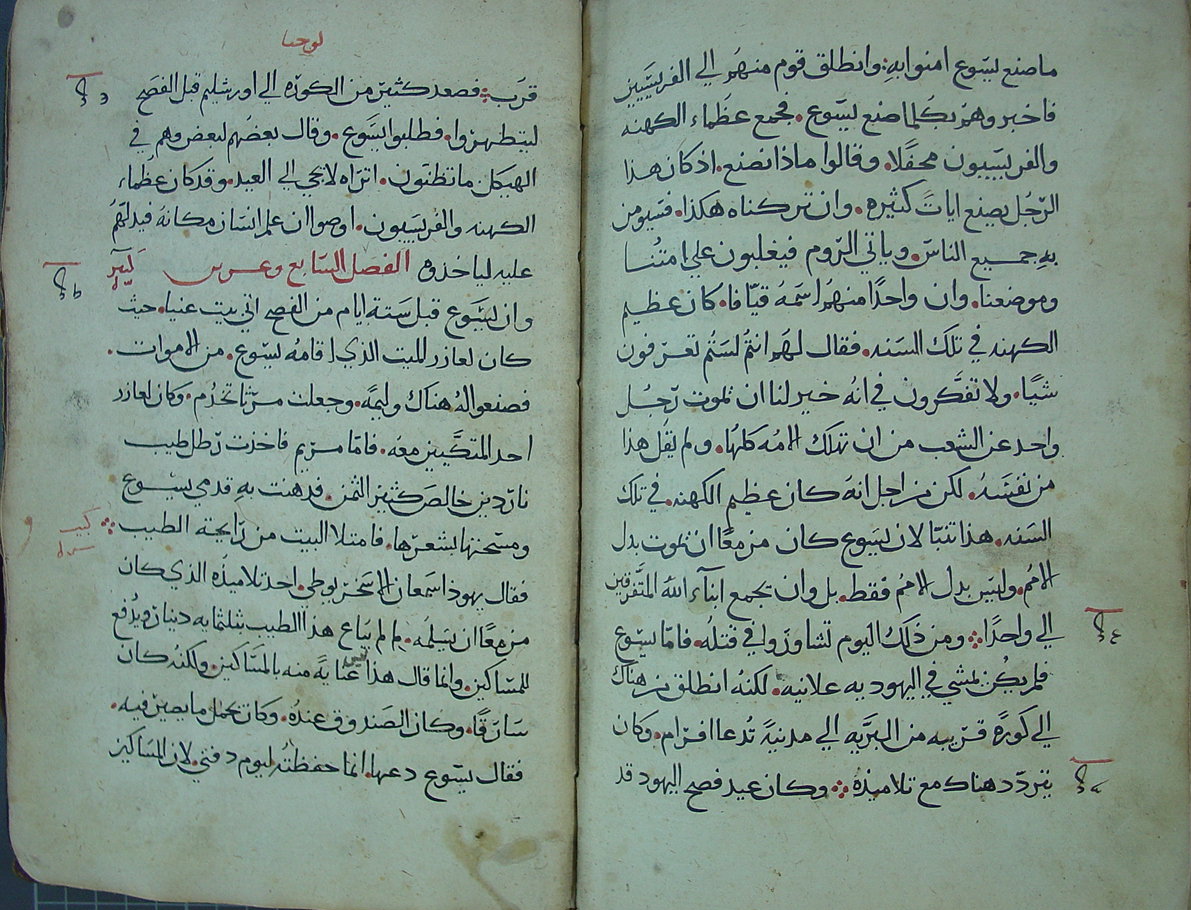 ما صنع يسوع امنوا به وانطلق قوم منهم الي الفريسيين
فاخبروهم بكلما صنع يسوع فجمع عظماء الكهنه
والفريسيون محفلا وقالوا ماذا نصنع اذ كان هذا
الرجل يصنع ايات كثيره وان تركناه هكذا فسيومن
به جميع الناس وياتي الروم فيغلبون علي امتنا
وموضعنا وان واحدا منهم اسمه قيافا كان عظيم
الكهنه في تلك السنه فقال لهم انتم لستم تعرفون
شيا ولا تفكرون في انه خير لنا ان يموت رجل
واحد عن الشعب من ان تهلك الامه كلها ولم يقل هذا
من نفسه لكن من اجل انه كان عظيم الكهنه في تلك
السنه هذا تنبا لان يسوع كان مزمعا ان يموت بدل
الامم وليس بدل الامم فقط بل وان يجمع ابنآء الله المتفرقين
الي واحدا ومن ذلك اليوم تشاوروا في قتله فاما يسوع
فلم يكن يمشي في اليهوديه علانيه لكنه انطلق من هناك
الي كورة قريبه من البريه الي مدينة تدعا افرام وكان
يتردد هناك مع تلاميذه وكان عيد فصح اليهود قد
يوحنا
قرب فصعد كثير من الكوره الي اورشليم قبل الفصح
ليتطهروا فطلبوا يسوع وقال بعضهم لبعض وهم في
الهيكل ما تظنون اتراه لا يجي الي العيد وقد كان عظماء
الكهنه والفريسيون اوصوا ان علم انسان مكانه فيدلهم
عليه لياخذوه الفصل السابع وعـرس
وان يسوع قبل ستة ايام من الفصح اتي بيت عنيا حيث
كان لعازر الميت الذي اقامه يسوع من الاموات
فصنعوا له هناك وليمه وجعلت مرثا تخدم وكان لعازر
احد المتكيين معه فاما مريم فاخذت رطل طيب
ناردين خالص كثير الثمن فدهنت به قدمي يسوع
ومسحتها بشعرها فامتلا البيت من رايحة الطيب
فقال يهوذا سمعان الاسخريوطي احد تلاميذه الذي كان
مزمعا ان يسلمه لم لم يباع هذا الطيب بثلثمايه دينار ويدفع
للمساكين وانما قال هذا ليس عنايةً منه بالمساكين ولكنه كان
سارقا وكان الصندوق عنده وكان يحمل ما يصير فيه
فقال يسوع دعها انما حفظته ليوم دفني لان المساكين